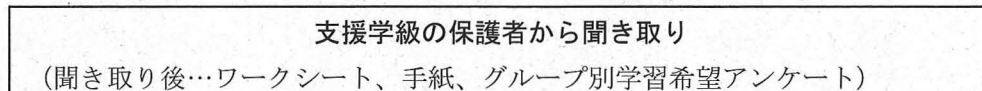 支援学級の保護者から聞き取り
（聞き取り後…ワークシート、手紙、グループ別学習希望アンケート）